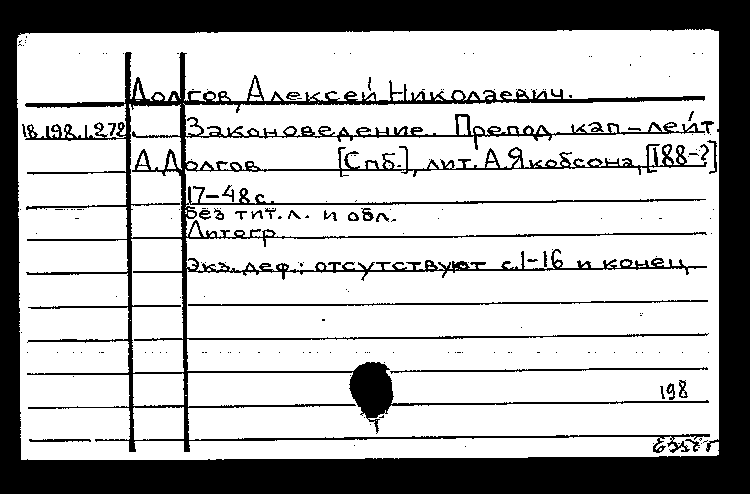 Долгов, Алексей Николаевич.
18.198.1.272. Законоведение. Препод. кап-лейт.
А. Долгов. [Спб.], лит. А. Якобсона, [188-?]
17-48 с.
Без тит. л. и обл.
Литогр.
Экз. деф.: отсутствуют с. 1-16 и конец
198